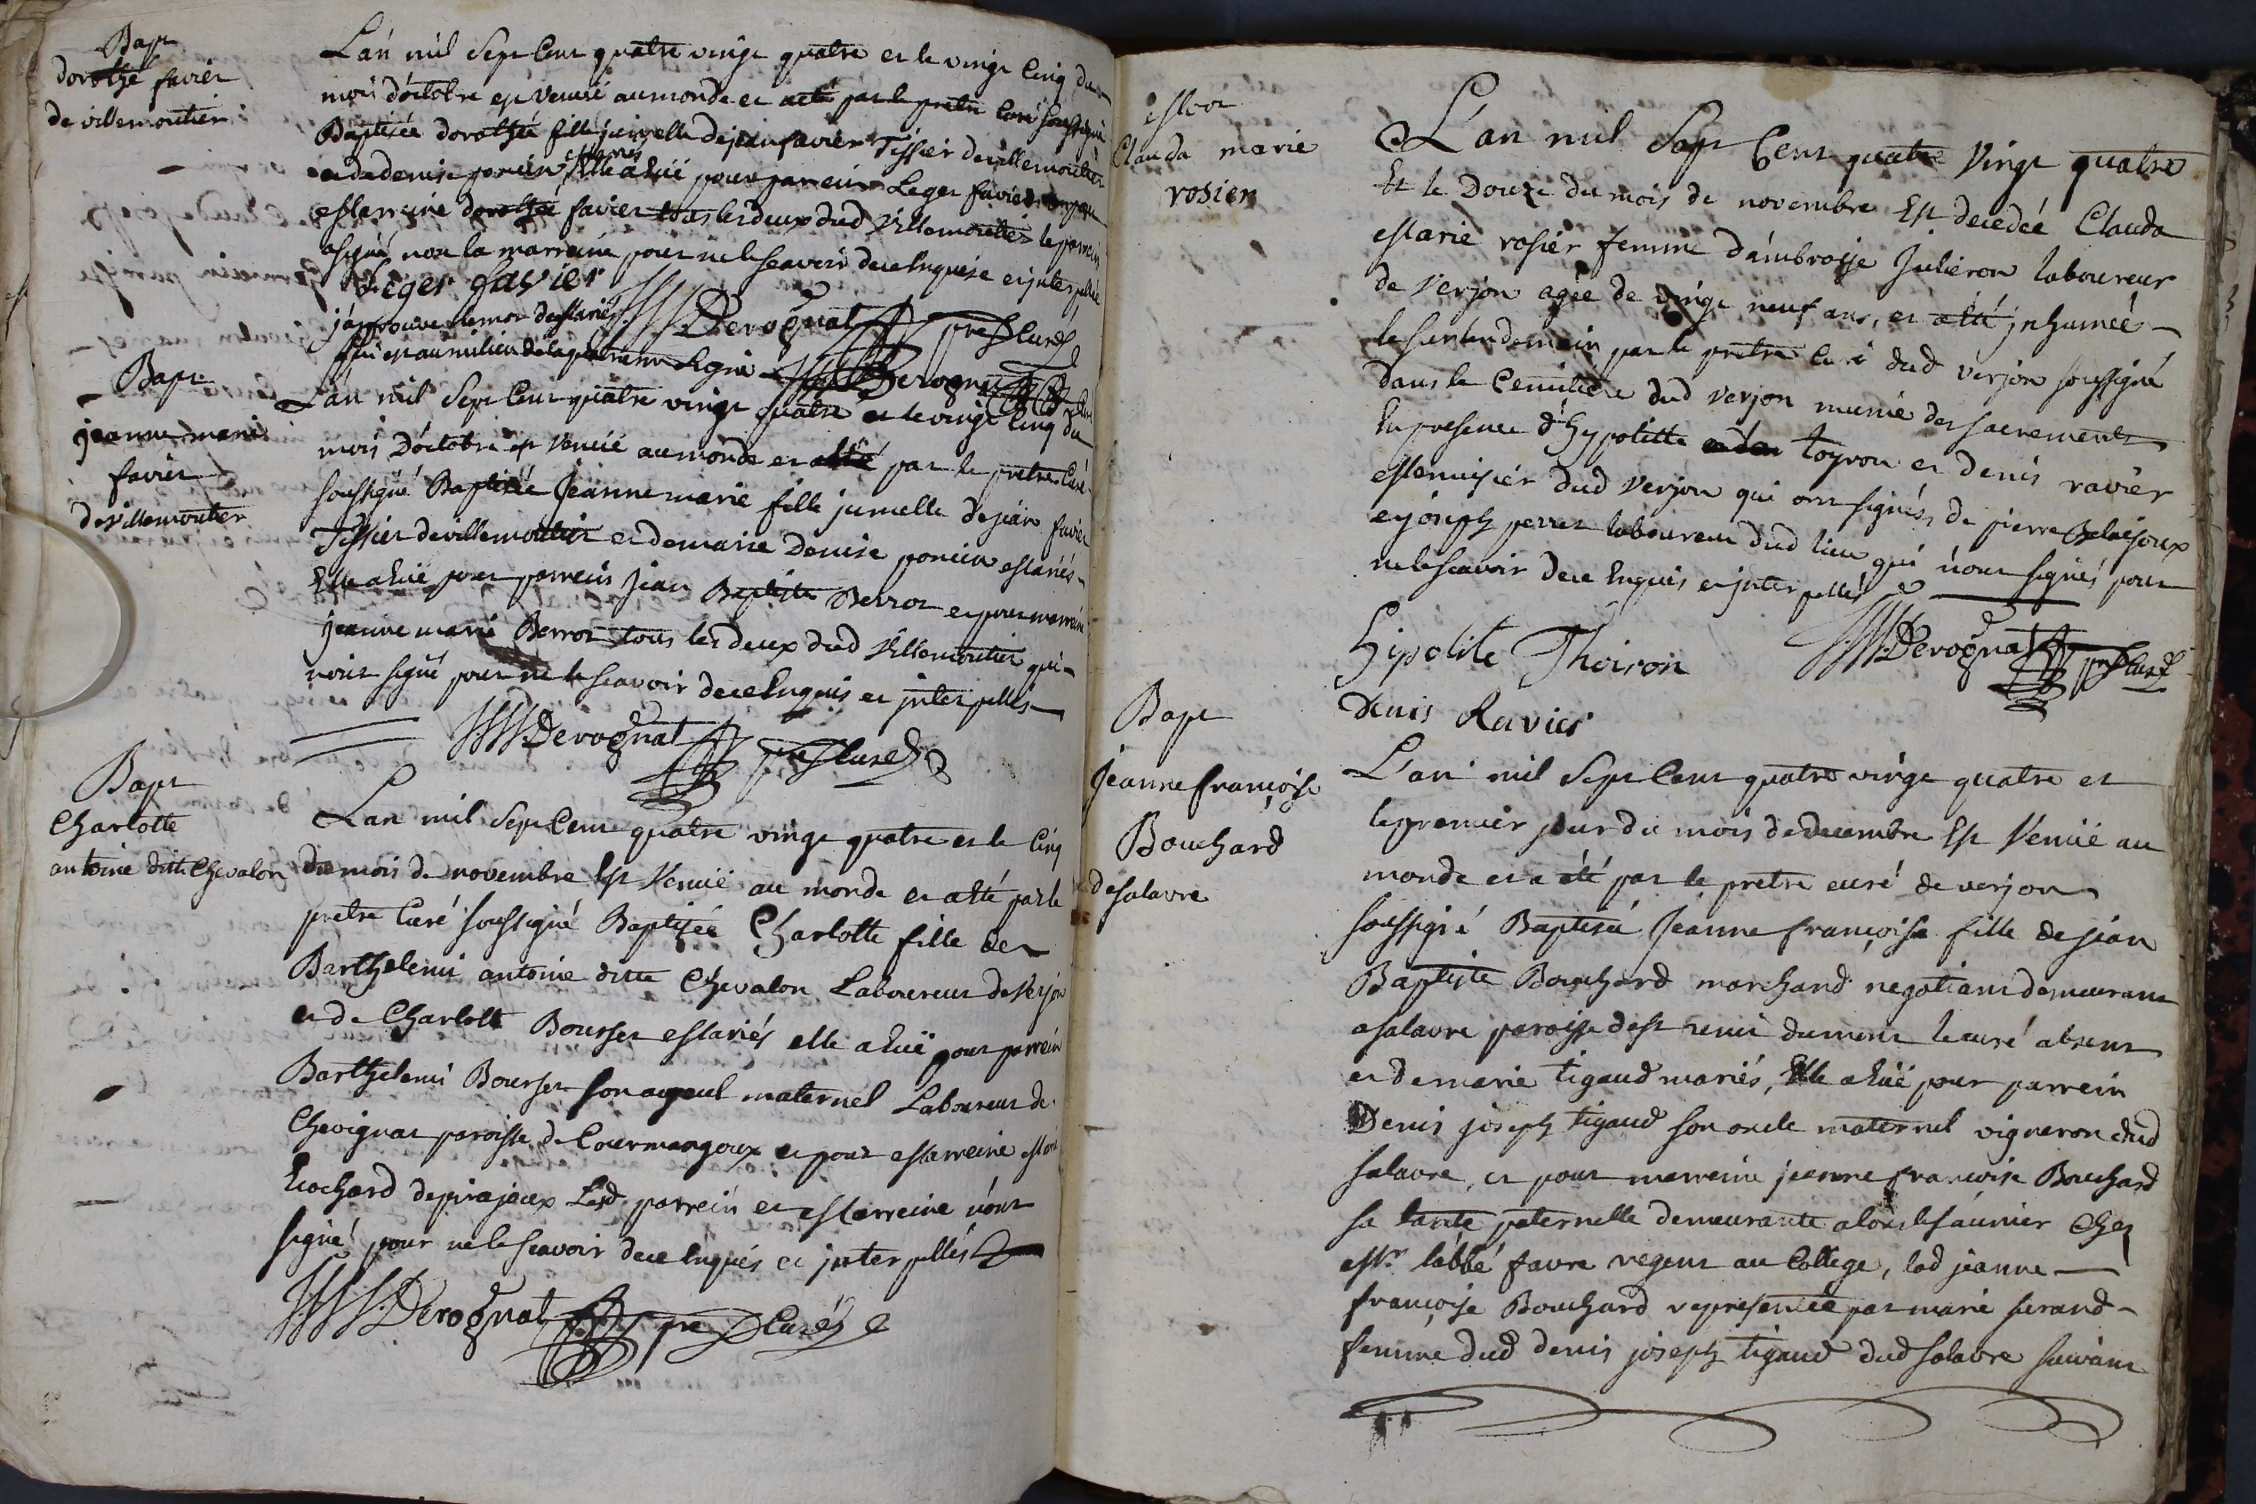 Bapt
dorothé favier
de villemoutier
L'an mil Sept Cent quatre vingt quatre et le vingt Cinq du
mois d'octobre est venuë au monde et a eté par le pretre Curé soussigné
Baptisée dorothée fille jumelle de jean favier Tissier de villemoutier
et de denise poncin Mariés Elle a Euë pour parrein Leger favier
et Marreine dorothée favier tous les deux dud Villemoutier le parrein
a signé, non la marreine pour ne le scavoir de ce Enquise et jnterpellée
Leger favier
Derognat ptre Curé
j'approuve le mot de Mariés
qui est au milieu de la ligne Derognat
Bapt
jeanne marie
favier
de villemoutier
L'an mil Sept Cent quatre vingt quatre et le vingt Cinq du
mois D'octobre est Venuë au monde et a eté par le pretre Curé
soussigné Baptisée Jeanne marie fille jumelle de jean favier
Tissier de villemoutier et de marie Denise poncin Mariés
Elle a Euë pour parrein Jean Baptiste Berrot et pour marreine
jeanne marie Berrot tous les deux dud Villemoutier qui
n'ont signé pour ne le scavoir de ce Enquis et jnterpellés
Derognat ptre Curé
Bapt
Charlotte
antoine ditte Chevalon
L'an mil Sept Cent quatre vingt quatre et le Cinq
du mois de novembre Est Venuë au monde et a eté par le
pretre Curé soussigné Baptisée Charlotte fille de
Barthelemi antoine ditte Chevalon Laboureur de Verjon
et de Charlotte Bourset Mariés elle a Euë pour parrein
Barthelemi Bourset son ayeul maternel Laboureur de
Chevignat paroisse de Courmangoux et pour Marreine Marie
Cochard de pirajoux Lesd parrein et Marreine n'ont
signé pour ne le scavoir de ce Enquis et jnterpellés
Derognat ptre Curé
Mort
Clauda marie
rosier
L'an mil Sept Cent quatre Vingt quatre
Et le Douze du mois de novembre Est decedée Clauda
Marie rosier femme d'ambroise Julieron laboureur
de Verjon agée de vingt neuf ans, et a eté jnhumée
le surlendemain par le pretre Curé dud verjon soussigné
dans le Cemitiere dud verjon munie des sacrements
En presence d'hypolitte toyron et denis ravier
Menuisier dud Verjon qui ont signés, de pierre Belaisoux
et joseph perret laboureur dud lieu qui n'ont signés pour
ne le scavoir de ce Enquis et jnterpellés
hipolite Thoiron
Derognat ptre Curé
Denis Ravier
Bapt
jeanne françoise
Bouchard
de salavre
L'an mil Sept Cent quatre vingt quatre et
le premier jour du mois de decembre Est Venuë au
monde et a eté par le pretre curé de verjon
soussigné Baptisée Jeanne françoise fille de jean
Baptiste Bouchard marchand negotiant demeurant
a salavre paroisse de st remi du mont le curé absent
et de marie tigaud mariés, Elle a Euë pour parrein
Denis joseph tigaud son oncle maternel vigneron dud
salavre, et pour marreine jeanne francoise Bouchard
sa tante paternelle demeurante a lon le saunier Chez
Mr. l'abbé favre regent au College, lad jeanne
françoise Bouchard representée par marie
femme dud denis joseph tigaud dud salavre suivant